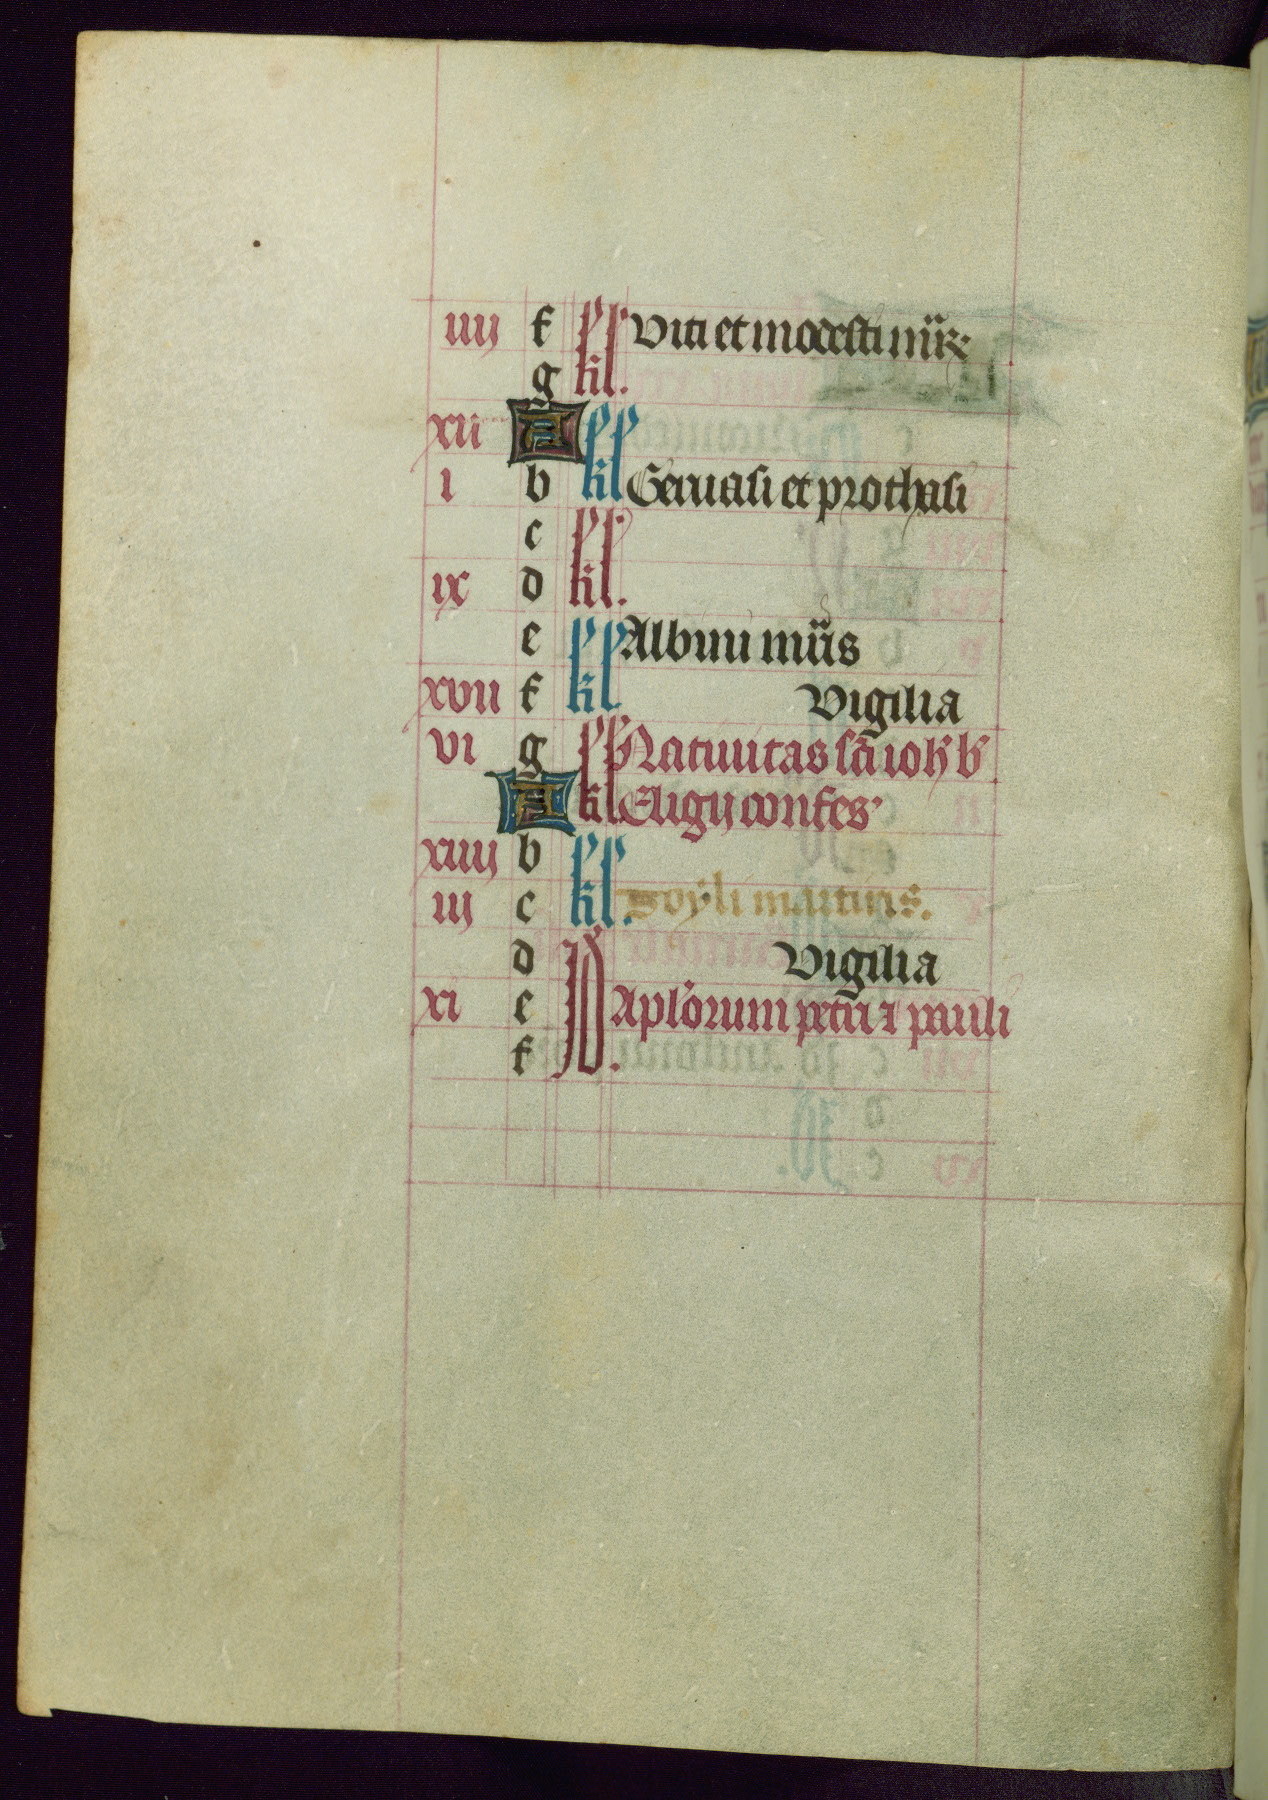 iiij f Viti et modesti mr̄
g kl.
xii A
i b kl Geruasi et prothasi
c
ix d kl.
e Albini mr̄is
xvii f kl Vigilia
vi g Natiuitas sc̄i ioh b
A kl Eligij confes
xiiij b
iij c kl. martiris.
d Vigilia
xi e Aplorum petri ⁊ pauli
f